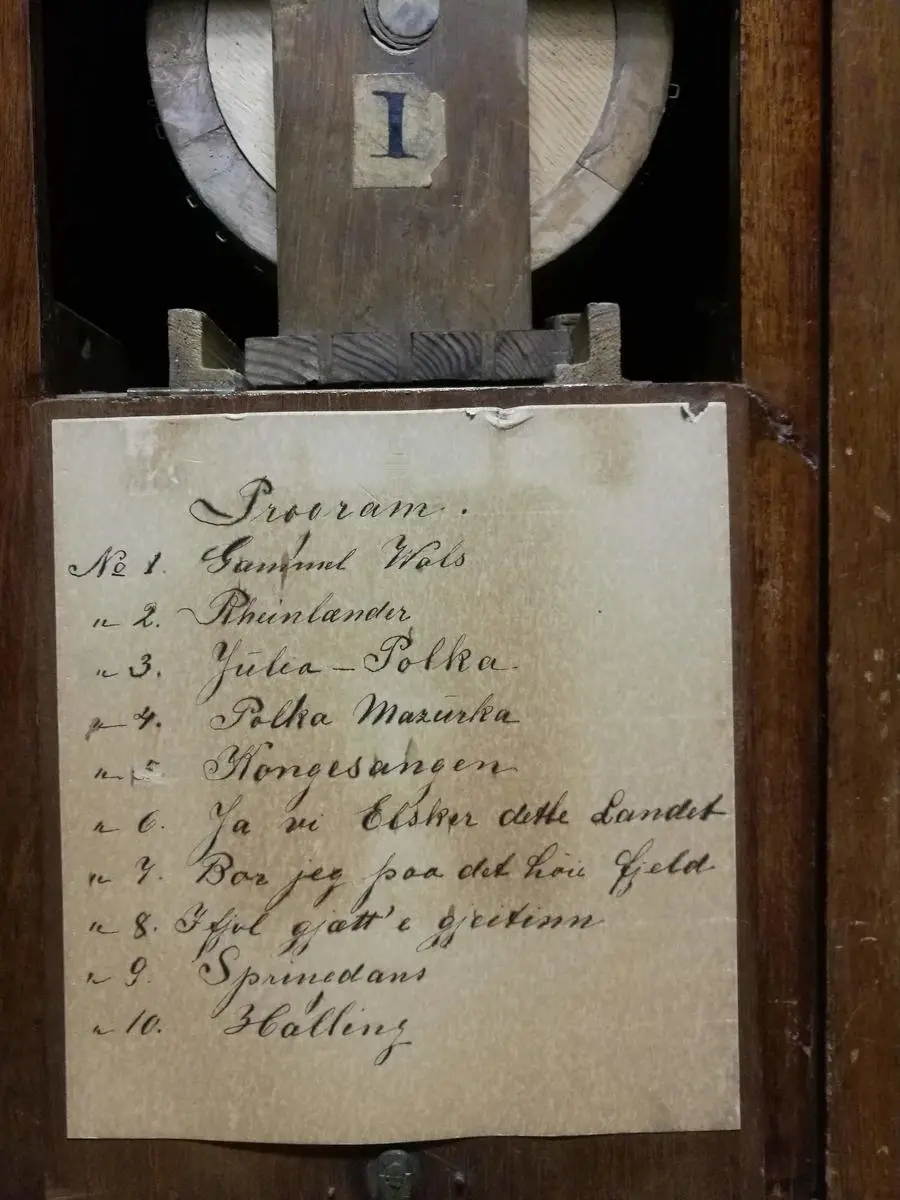 I
Program.
No 1. Gammel Wals
" 2. Rheinlænder
" 3. Julia - Polka.
" 4. Polka Mazurka
" 5 Kongesangen
" 6. Ja vi Elsker dette Landet
" 7. Bor jeg paa det høie fjeld
" 8. I fjol gjætt'e gjeitinn
" 9. Springdans
" 10. Halling